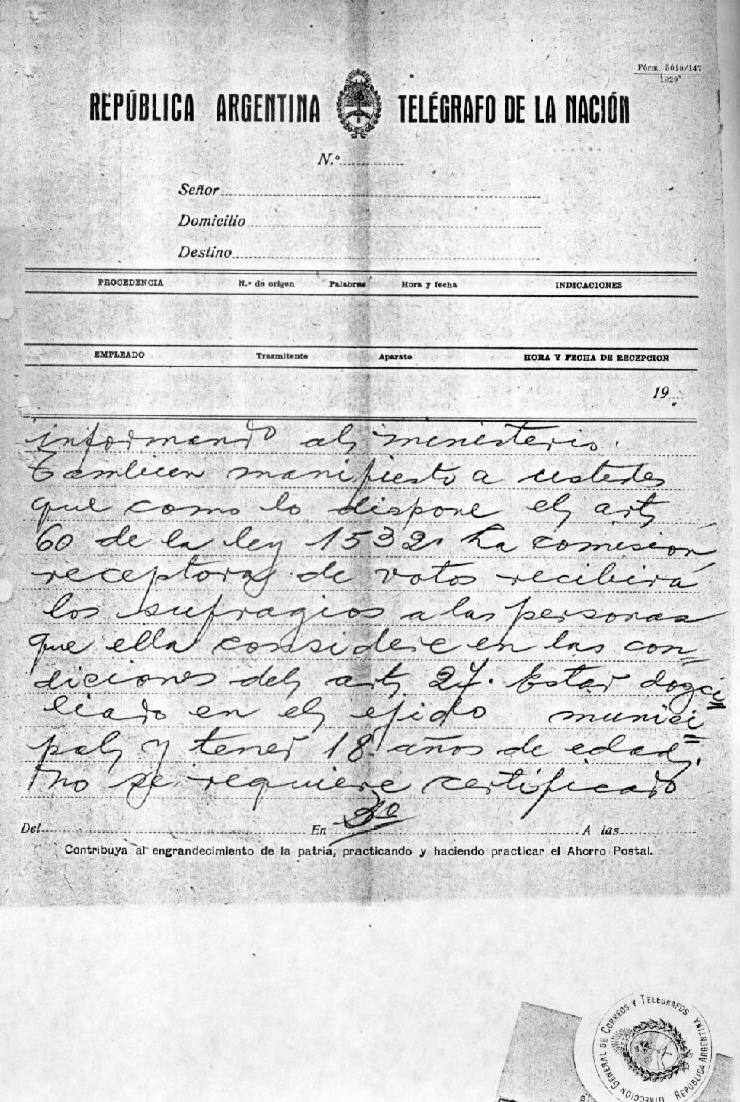 Fórm. 3010/147
1929
REPÚBLICA ARGENTINA TELÉGRAFO DE LA NACIÓN
N.º
Señor
Domicilio
Destino
PROCEDENCIA N.º de origen Palabras Hora y fecha INDICACIONES
EMPLEADO Trasmitente Aparato HORA Y FECHA DE RECEPCION
19
informando al ministerio.
Tambien manifiesto a ustedes
que como lo dispone el art
60 de la ley 1532 La comision
receptora de votos recibirá
los sufragios a las personas
que ella considere en las con-
diciones del art 27. Estar domici
liado en el ejido munici
pal y tener 18 años de edad,
no se requiere certificado
Del En A las
Contribuya al engrandecimiento de la patria, practicando y haciendo practicar el Ahorro Postal.
DIRECCION GENERAL DE CORREOS Y TELEGRAFOS
REPUBLICA ARGENTINA